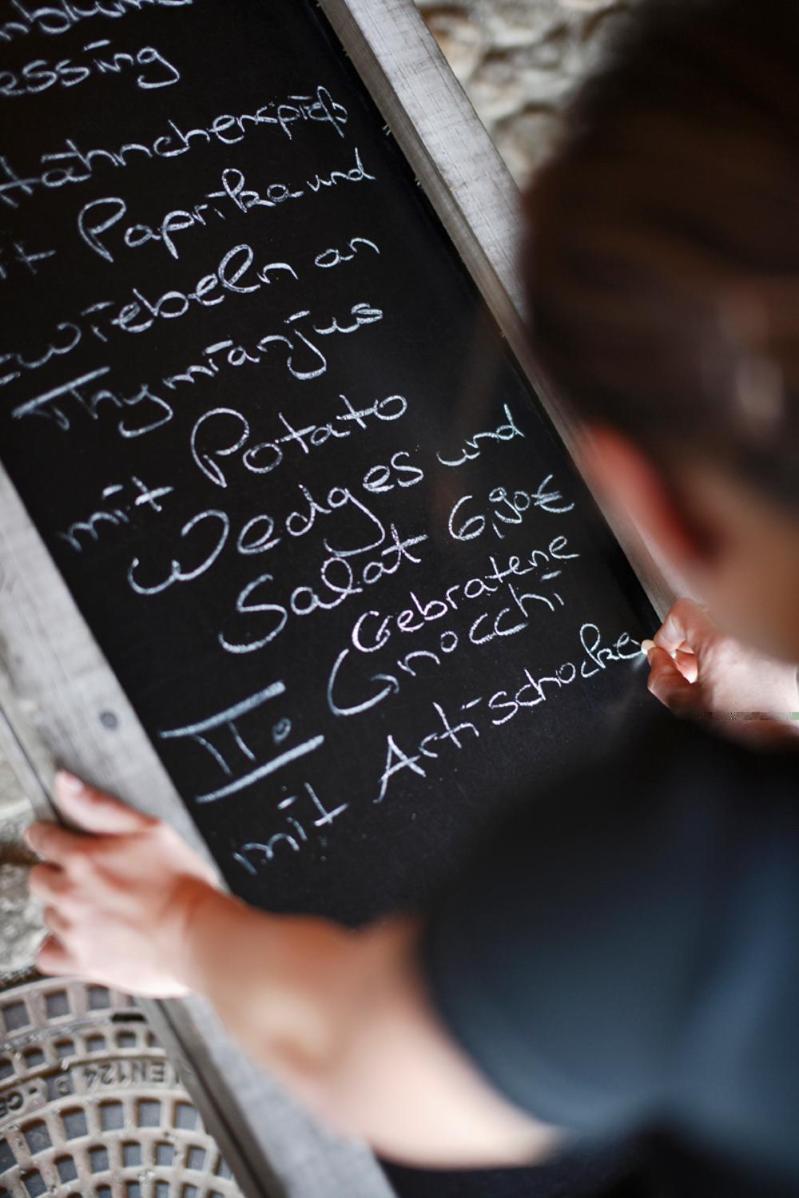 essing
Hähnchenspieß
Paprika und
zwiebeln an
Thymianjus
mit Potato
Wedges und
Salat 6,90€
II. Gebratene
Gnocchi
mit Artischocke
EN124 D